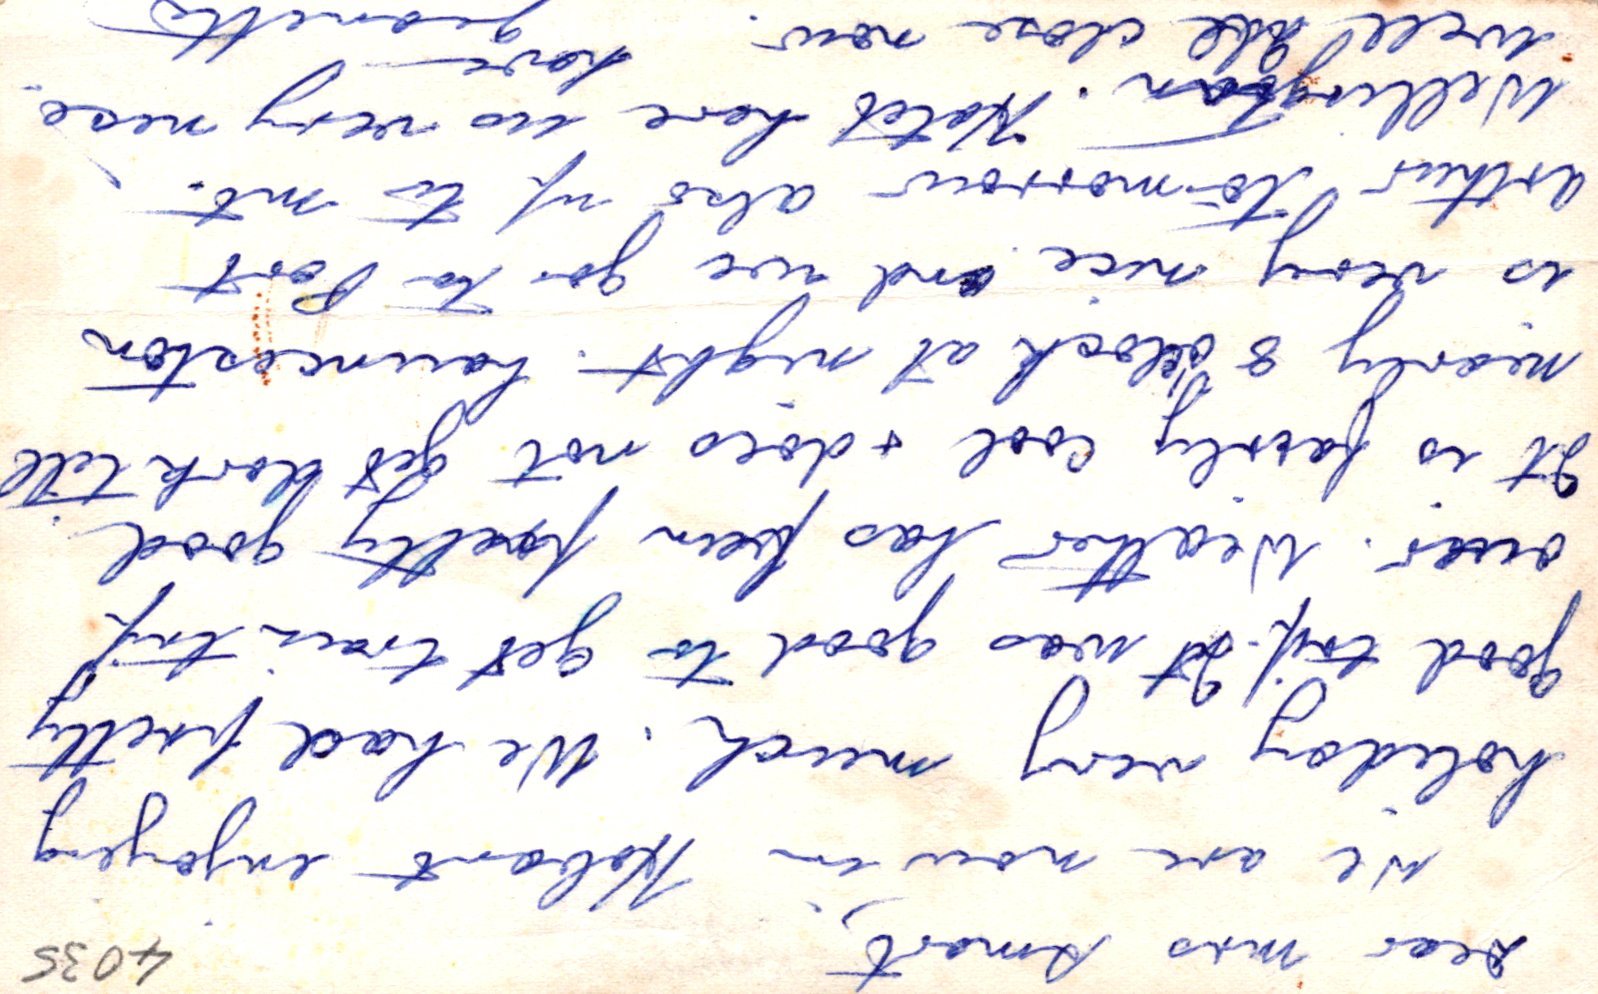 4035
Dear Miss Smart,
We are now in Hobart enjoying
holiday very much. We had pretty
good trip. It was good to get train trip
over. Weather has been pretty good
It is fairly cool + does not get dark till
nearly 8 o'clock at night. Launceston
is very nice and we go to Port
Arthur to-morrow also up to Mt.
Wellington. Hotel here is very nice.
Well will close now. Love
Jeanette